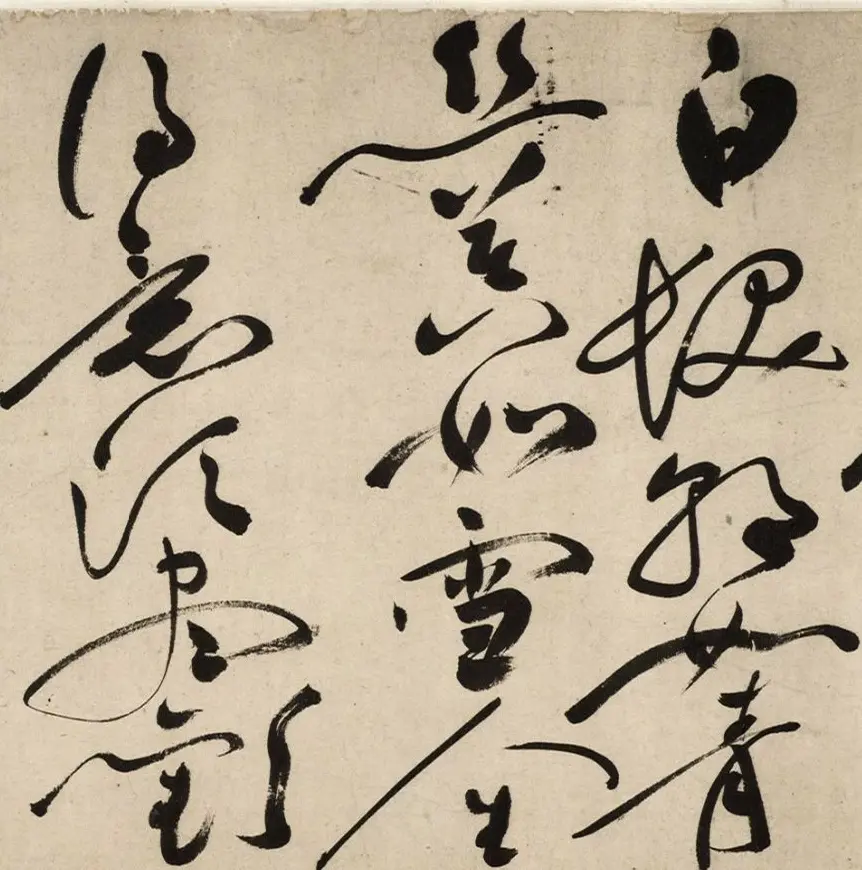 白髮朝如青
絲暮如雪人生
得意須盡歡